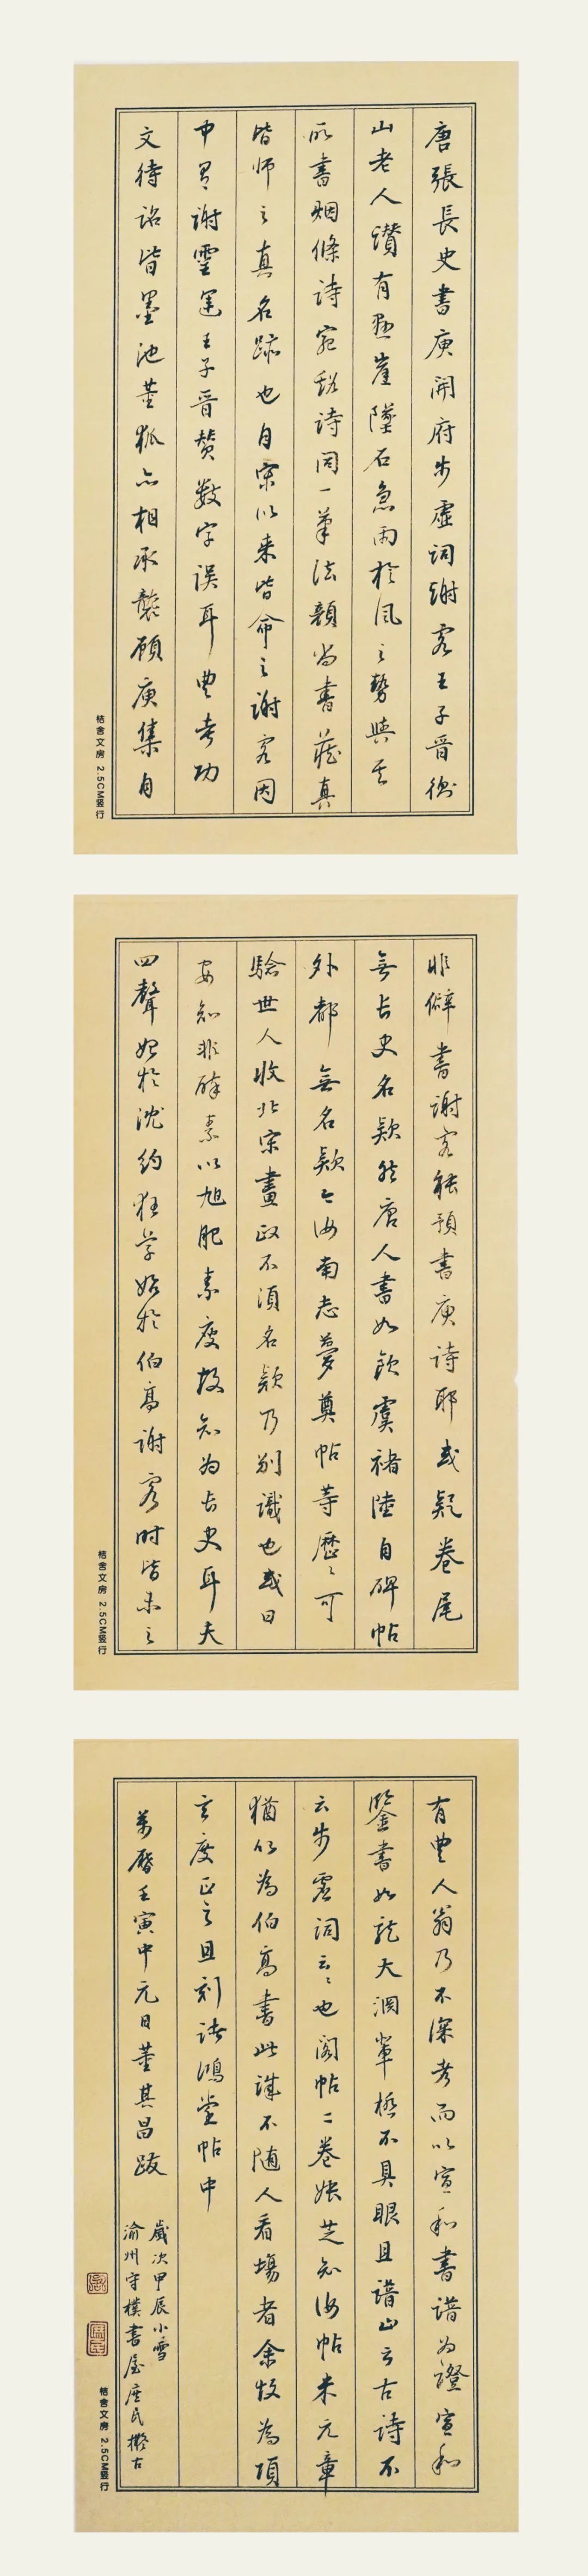 唐張長史書庾開府步虛詞謝客王子晉衡
山老人讚有懸崖墜石急雨旋風之勢與其
所書煙條詩宛谿詩同一筆法顏尚書藏真
皆師之真名跡也自宋以來皆命之謝客因
中有謝靈運王子晉贊數字誤耳豐考功
文待詔皆墨池董狐亦相承襲顧庾集自
非僻書謝客能預書庾詩耶或疑卷尾
無長史名款然唐人書如歐虞褚陸自碑帖
外都無名款今汝南志夢奠帖等歷〻可
驗世人收北宋畫政不須名款乃別識也或曰
安知非醉素以旭肥素瘦故知為長史耳夫
四聲始於沈約狂草始於伯高謝客時皆未之
有豐人翁乃不深考而以宣和書譜為證宣和
鑒書如龍大淵輩極不具眼且譜止云古詩不
云步虛詞云〻也閣帖二卷張芝知汝帖米元章
猶以為伯高書此誠不隨人看場者余故為項
玄度正之且刻諸鴻堂帖中
萬曆壬寅中元日董其昌跋
歲次甲辰小雪
渝州守樸書屋庶民擬古
桔舍文房 2.5CM竖行
桔舍文房 2.5CM竖行
桔舍文房 2.5CM竖行